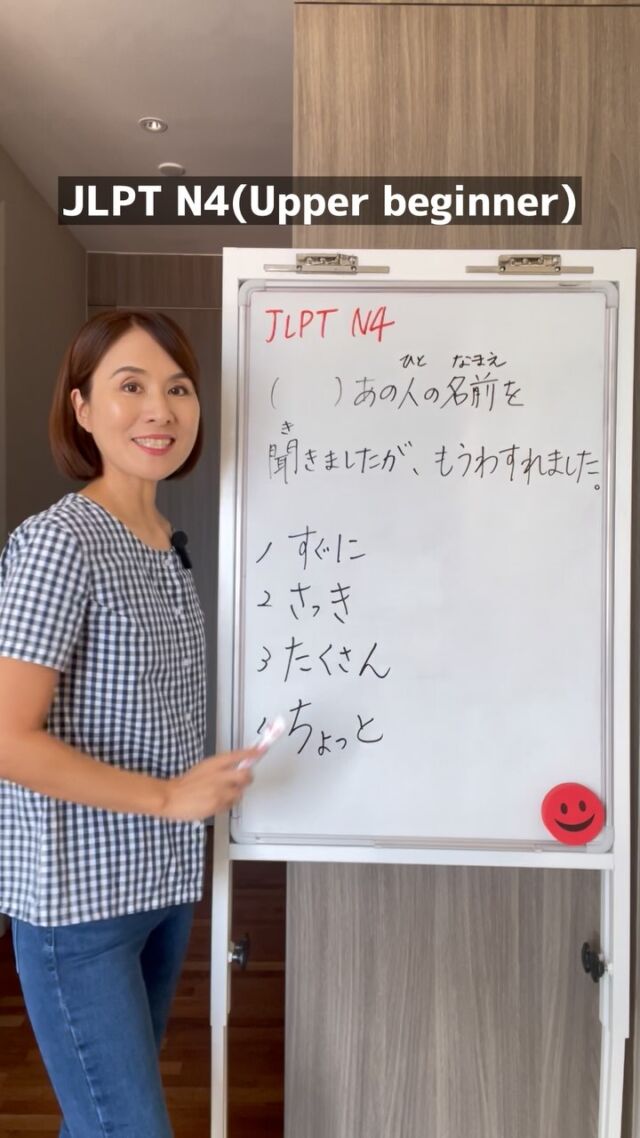 JLPT N4(Upper beginner)
JLPT N4
ひと なまえ
( )あの人の名前を
き
聞きましたが、もうわすれました。
1 すぐに
2 さっき
3 たくさん
ちょっと